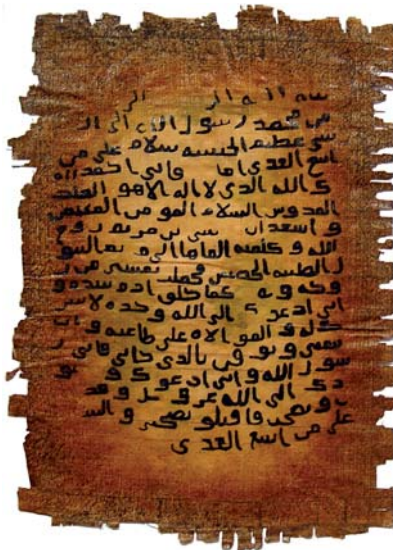 من محمد رسول الله الى ال
شي عظيم الحبشه سلام على من
اتبع الهدى اما فاني احمد
ك الله الذي لا اله الا هو الملك
القدوس السلام المومن المهيمن
و اشهد ان بن مريم روح
الله و كلمته القاها الى مريم البتو
ل الطيبه الحصينه فحملت بعيسى من ر
وحه و كما خلق ادم بيده و
اني ادعوك الى الله وحده لا شر
يك له و الموالاه على طاعته و ان
تتبعني و توقن بالذي جاني فاني ر
سول الله و اني ادعوك و
دك الى الله عز و جل و قد
و نصحت فاقبلو نصحي و السـ
على من اتبع الهدى